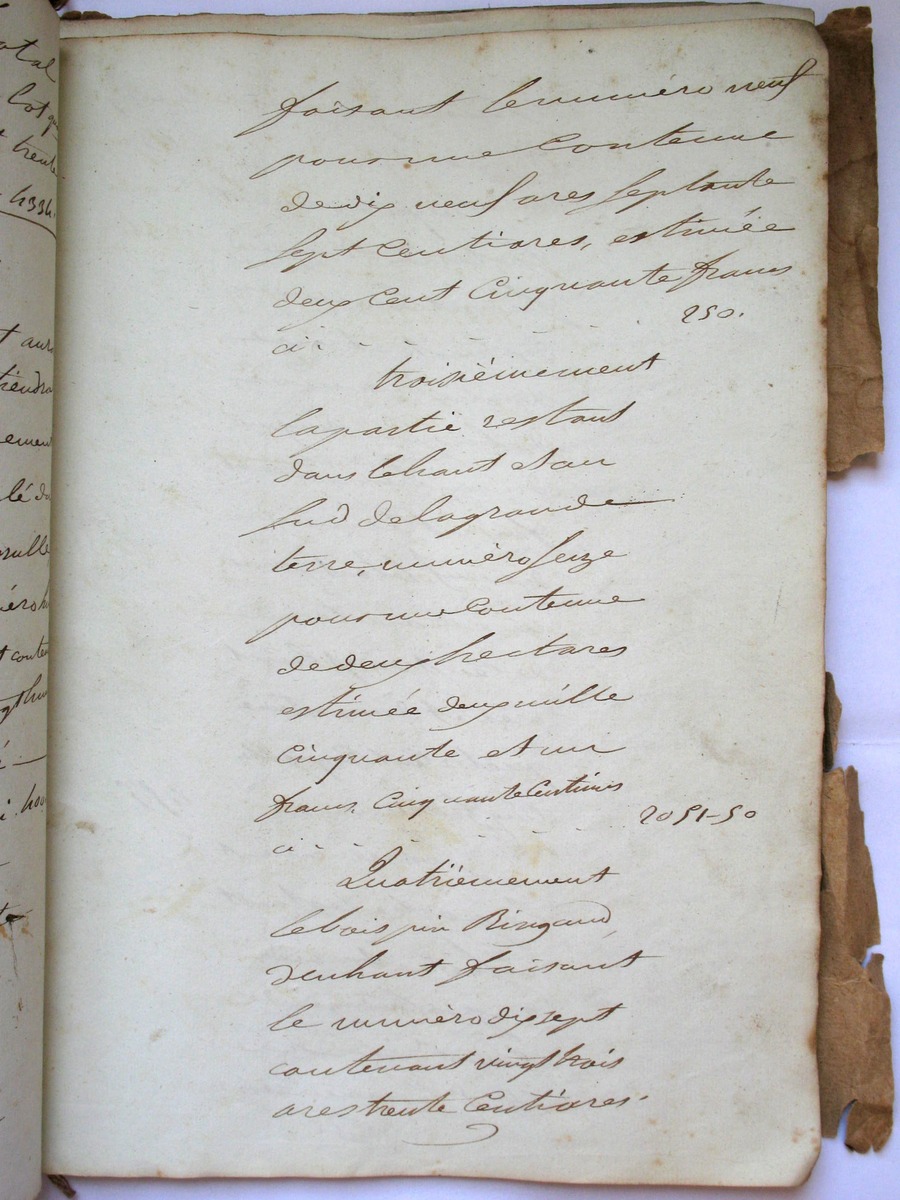 faisant le numéro neuf
pour une Contenue
de dix neuf ares Septante
Sept Centiares, estimée
deux Cent Cinquante francs
ci - - - - - - - 250.
troisièmement
la partie restant
dans le haut et au
Sud de la grande
terre, numéro Seize
pour une Contenue
de deux hectares
estimée deux mille
Cinquante et un
francs, Cinquante Centimes
ci - - - - - - - 2051-50
Quatrièmement
le bois pin
d'en haut faisant
le numéro dix sept
contenant vingt trois
ares trente Centiares.